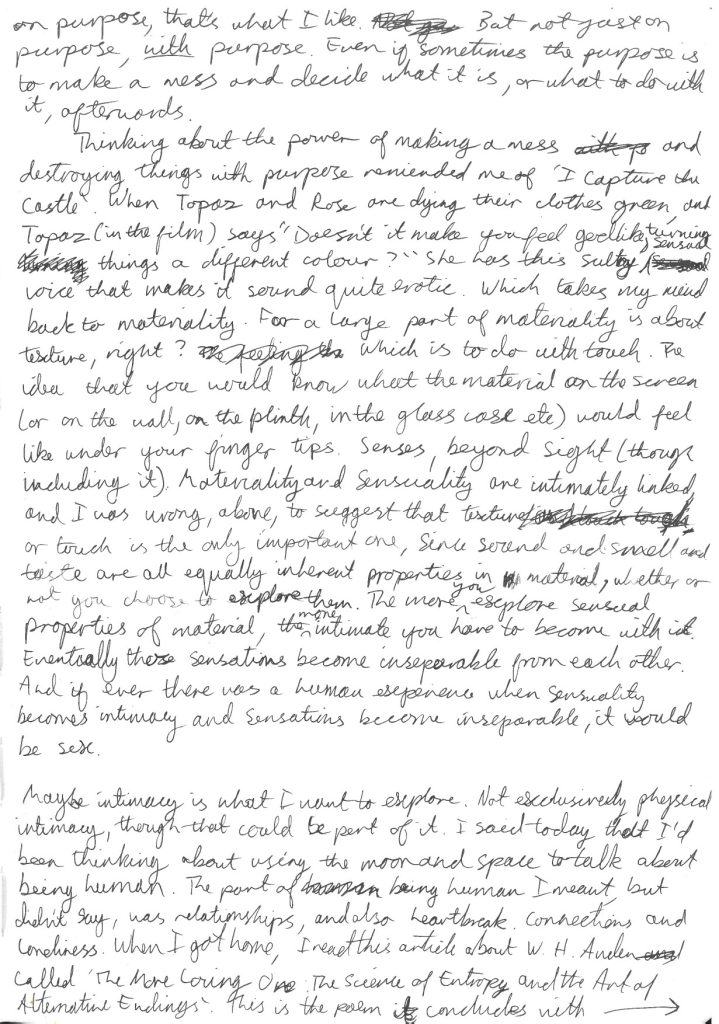 on purpose, that's what I like. But not just on
purpose, with purpose. Even if sometimes the purpose is
to make a mess and decide what it is, or what to do with
it, afterwards.
Thinking about the power of making a mess and
destroying things with purpose reminded me of 'I Capture the
Castle'. When Topaz and Rose are dying their clothes green and
Topaz (in the film) says "Doesn't it make you feel godlike, turning
things a different colour?" She has this sultry, sensual
voice that makes it sound quite erotic. Which takes my mind
back to materiality. For a large part of materiality is about
texture, right? which is to do with touch. The
idea that you would know what the material on the screen
(or on the wall, on the plinth, in the glass case etc) would feel
like under your finger tips. Senses, beyond sight (though
including it). Materiality and Sensuality are intimately linked
and I was wrong, above, to suggest that texture
or touch is the only important one, since sound and smell and
taste are all equally inherent properties in material, whether or
not you choose to explore them. The more you explore sensual
properties of material, the more intimate you have to become with it.
Eventually these sensations become inseparable from each other.
And if ever there was a human experience when sensuality
becomes intimacy and sensations become inseparable, it would
be sex.
Maybe intimacy is what I want to explore. Not exclusively physical
intimacy, though that could be part of it. I said today that I'd
been thinking about using the moon and space to talk about
being human. The part of being human I meant, but
didn't say, was relationships, and also heartbreak. Connections and
loneliness. When I got home, I read this article about W. H. Auden
called 'The More Loving One: The Science of Entropy and the Art of
Alternative Endings'. This is the poem it concludes with →